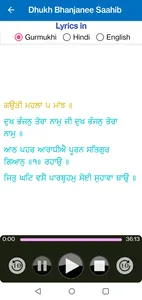 Dhukh Bhanjanee Saahib
Lyrics in
Gurmukhi Hindi English
ਗਉੜੀ ਮਹਲਾ ੫ ਮਾਂਝ ॥
ਦੁਖ ਭੰਜਨੁ ਤੇਰਾ ਨਾਮੁ ਜੀ ਦੁਖ ਭੰਜਨੁ ਤੇਰਾ
ਨਾਮੁ ॥
ਆਠ ਪਹਰ ਆਰਾਧੀਐ ਪੂਰਨ ਸਤਿਗੁਰ
ਗਿਆਨੁ ॥੧॥ ਰਹਾਉ ॥
ਜਿਤੁ ਘਟਿ ਵਸੈ ਪਾਰਬ੍ਰਹਮੁ ਸੋਈ ਸੁਹਾਵਾ ਥਾਉ ॥
0:00 36:13
10 10